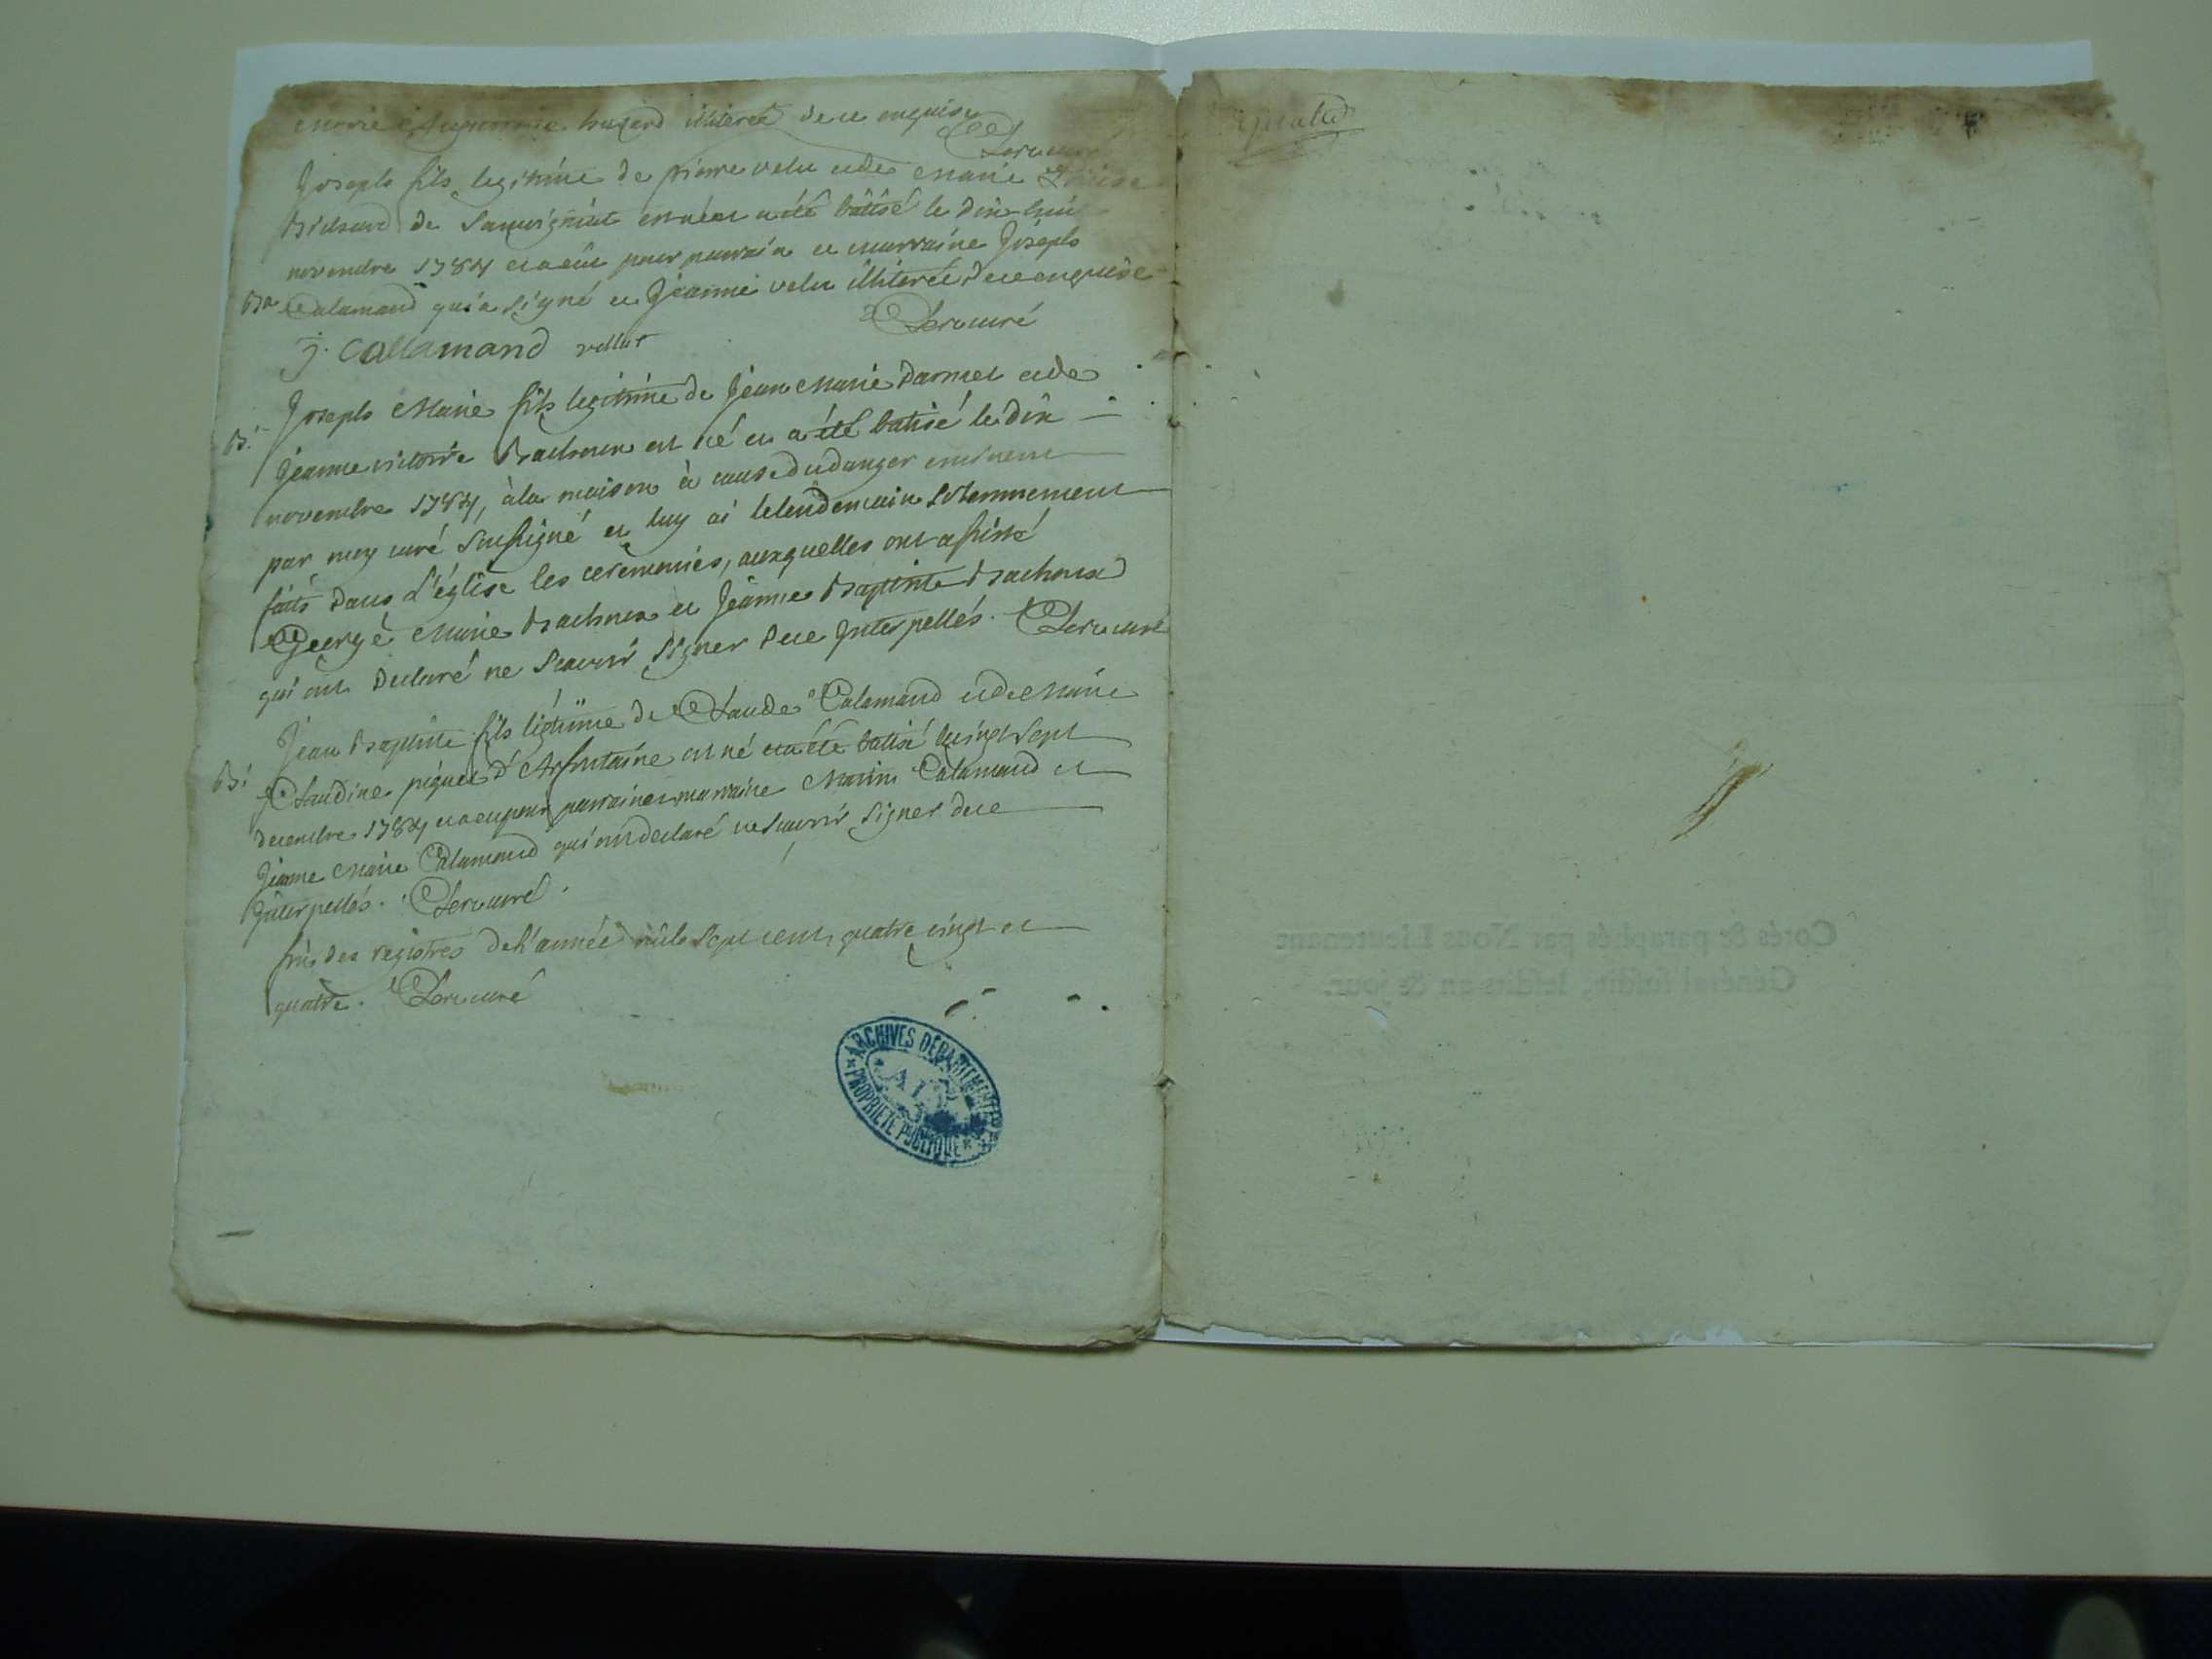 marie hugard illiterée de ce enquise
Joseph fils legitime de pierre velu et de marie Louise
de est né et a été bâtisé le dix huit
novembre 1784 et a eu pour parrain et marraine Joseph
Ba Calamand qui a signé et Jeanne velu illiterée de ce enquise
curé
J. Callamand vellut
Joseph Marie fils legitime de Jean Marie Darmet et de
B. Jeanne victoire Bachoux est né et a été batisé le dix
novembre 1784, à la maison à cause du danger eminent
par moy curé soussigné et luy ai le lendemain solemnement
faits dans l'église les ceremonies, auxquelles ont assisté
George Marie Bachoux et Jeanne Baptiste Bachoux
qui ont declaré ne scavoir signer de ce Interpellés. curé
Jean Baptiste fils légitime de Claude Calamand et de Marie
B. Claudine piquet d' est né et a été batisé le vingt sept
decembre 1784 et a eu pour parrain et marraine Marin Calamand et
Jeanne Marie Calamand qui ont declaré ne scavoir signer de ce
Interpellés. curé.
fin des registres de l'année mile sept cent quatre vingt et
quatre. curé
ARCHIVES DEPARTEMENTALES
AIN
PROPRIETE PUBLIQUE
Cotés & paraphés par Nous Lieutenant
Général susdit, lesdits an & jour.